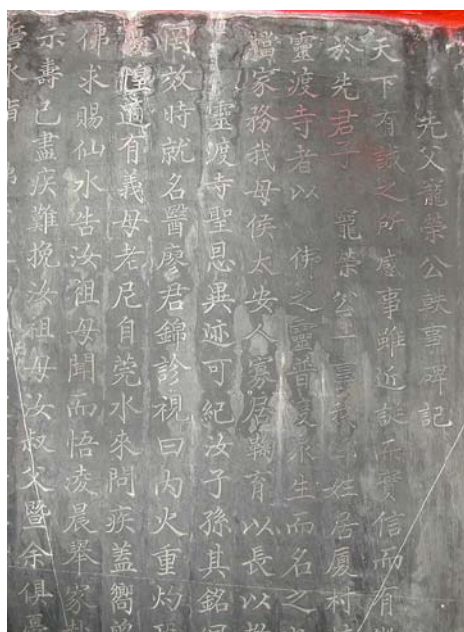 先父寵榮公軼事碑記
天下有誠之所感事雖近誕而實信而有
於先君子 寵榮公一事我 姓居廈村
靈渡寺者以 佛之靈普 眾生而名之
家務我母侯太安人寡居鞠育以長以
靈渡寺聖恩異迹可紀汝子孫其銘
罔效時就名醫廖君錦診視曰內火重灼
惶 適有義母老尼自莞水來問疾蓋嚮
佛求賜仙水告汝祖母聞而悟凌晨舉家
示壽已盡疾難挽汝祖母汝叔父暨余俱